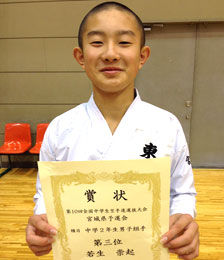 東
賞状
第10回全国中学生空手道選抜大会
宮城県予選会
種目 中学2年生男子組手
第三位
若生 崇起